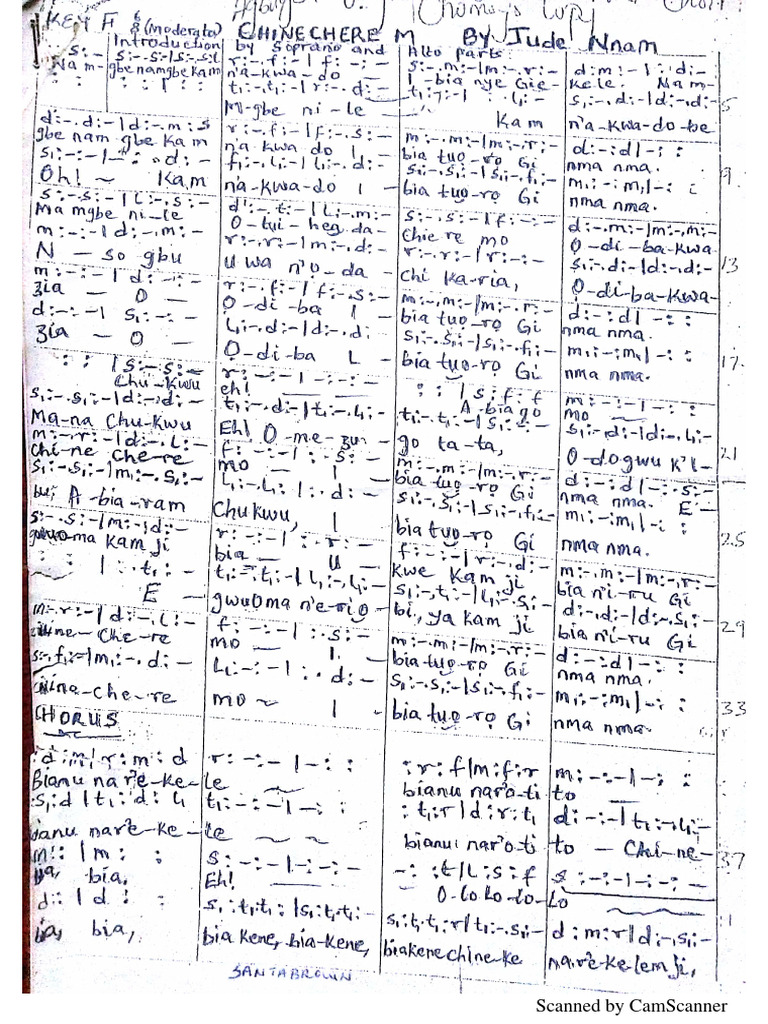 KEY F 6/8 (Moderato) CHINECHERE M BY Jude Nnam
Introduction by Soprano and Alto parts.
s:- | s:-.s:-|s:-.s:l | r:-.f:-|f:-:- | s:-.m:-|m:-.r:- | d:m:-|:d:-
Nam- gbe nam gbe kam n'a-kwa-do I-bia nye Gie- ke le. Nam-
M-gbe ni-le Kam n'a-kwa-do-be 5
d:-.d:-|d:-.m:s | r:-.f:-|f:-.s:- | m:-.m:-|m:-.r:- | d:-:d|-: :
gbe nam gbe Kam n'a-kwa do I bia tuo-ro Gi nma nma. 9
s₁:-:-|-:d:- | f₁:-.l₁:-|l₁:-.d:- | s₁:-.s₁:-|s₁:-.f₁:- | m₁:-:m₁|-: :
Oh! ~ Kam n'a-kwa-do I - bia tuo-ro Gi nma nma.
s:-.s:-|l:-.s:- | d':-.t:-|l:-.m:- | s:-.s:-|f:-:- | d:-.m:-|m:-.m:-
Ma mgbe ni-le O-tui-heg da- Chie re mo O-di-ba-kwa
m:-:-|d:-.m:- | r:-.r:-|m:-.d:- | r:-.r:-|r:-:- | s₁:-.d:-|d:-.d:- 13
N - so gbu u wa n'o-da- Chi ka-ria, O-di-ba-kwa-
m:-:-|d:-:- | r:-.f:-|f:-.s:- | m:-.m:-|m:-.r:- | d:-:d|-: :
zia - O - O-di-ba I - bia tuo-ro Gi nma nma.
d:-:-|s₁:-:- | l₁:-.d:-|d:-.d: | s₁:-.s₁:-|s₁:-.f₁:- | m₁:-:m₁|-: : 17
zia - O O-di-ba L - bia tuo-ro Gi nma nma.
: : |s:-.s:- | r:-:-|-:-:- | : : |s:f:f | m:-:-|-: :
Chu-kwu eh! A-bia go mo
s₁:-.s₁:-|d:-.d:- | t₁:-.d:-|t₁:-.l₁:- | t₁:-.t₁:-|s₁:-:- | s₁:-.d:-|d:-.l₁:- 21
Ma-na Chukwu Eh! O-me-zu- go ta-ta, O-dogwu k'i-
m:-.r:-|d:-.l:- | f:-:-|:s:- | m:-.m:-|m:-.r:- | d:-:d|-:s:-
chi-ne che-re mo - I bia tuo-ro Gi nma nma. E -
s₁:-.s₁:-|m₁:-.s₁:- | l₁:-.l₁:|:d:- | s₁:-.s₁:-|s₁:-.f₁:- | m₁:-:m₁|-: :
bu; A-bia-ram Chukwu, I bia tuo-ro Gi nma nma. 25
s:-.s:-|m:-.d:- | r:-:-|:r:- | f:-:-|r:-.d:- | m:-.m:-|m:-.r:-
ma Kam ji bia - U - kwe Kam ji bia n'i-ru Gi
: : |:t₁:- | t₁:-.t₁:-|l₁:-.l₁:- | s₁:-.t₁:-|l₁:-.s₁:- | d:-.d:-|d:-.s₁:- 29
E - gwuoma n'e-rig- bi, ya kam ji bia n'i-ru Gi
m:-.r:-|d:-.l:- | f:-:-|:s:- | m:-.m:-|m:-.r:- | d:-:d|-: :
ne-Che-re mo - I. - bia tuo-ro Gi nma nma.
s:-.f₁:-|m₁:-.d:- | l₁:-:-|:d:- | s₁:-.s₁:-|s₁:-.f₁:- | m₁:-:m₁|-: : 33
na-che-re mo ~ I - bia tuo-ro Gi nma nma.
CHORUS
:d:m|r:m:d | r:-:-|-: : | :r:f|m:f:r | m:-:-|-: :
Bianu nar'e-ke-le bianu nar'o-ti to
:s₁:d|t₁:d:l₁ | t₁:-:-|-: : | :t₁:r|d:r:t₁ | d:-:-|t₁:-.l₁:-
bianu nar'e-ke-le bianu nar'o-ti to - Chi-ne- 37
m: : |m: : | s:-:-|-:-:- | -: :t|l:s:f | s:-:-|-:-:-
bia, bia, Eh! O-lo lo-lo-lo
d: : |d: : | s₁:t₁:t₁|s₁:t₁:t₁- | s₁:t₁:t₁:r|t₁:-.s₁:- | d:m:r|d:-.s₁:-
bia, bia, bia kene, bia-kene, biakene chine-ke nar'e-ke lem ji,
SANTABROWN
Scanned by CamScanner